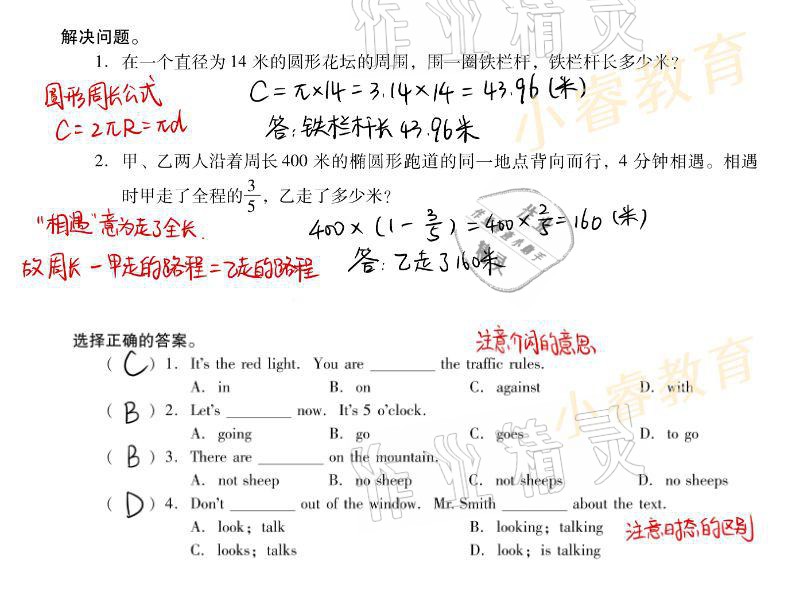 解决问题。
1. 在一个直径为 14 米的圆形花坛的周围，围一圈铁栏杆，铁栏杆长多少米？
圆形周长公式
C=2πR=πd
C=π×14=3.14×14=43.96(米)
答:铁栏杆长43.96米
2. 甲、乙两人沿着周长 400 米的椭圆形跑道的同一地点背向而行，4 分钟相遇。相遇
时甲走了全程的3/5，乙走了多少米？
"相遇"意为走了全长.
400×(1-3/5)=400×2/5=160(米)
故周长-甲走的路程=乙走的路程
答:乙走了160米
选择正确的答案。
注意介词的意思
( C ) 1. It's the red light. You are ________ the traffic rules.
A. in B. on C. against D. with
( B ) 2. Let's ________ now. It's 5 o'clock.
A. going B. go C. goes D. to go
( B ) 3. There are ________ on the mountain.
A. not sheep B. no sheep C. not sheeps D. no sheeps
( D ) 4. Don't ________ out of the window. Mr. Smith ________ about the text.
A. look; talk B. looking; talking
C. looks; talks D. look; is talking
注意时态的区别
作业精灵
小睿教育
作业精灵
小睿教育